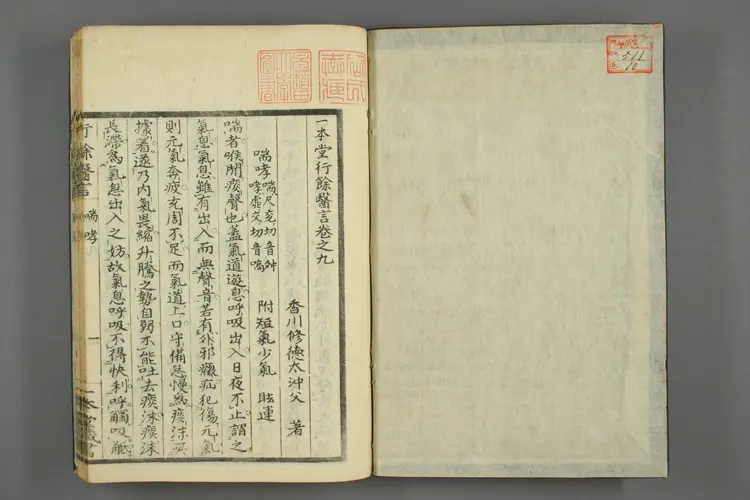 一本堂行餘醫言卷之九
香川修德太沖父 著
喘哮 喘尺兗切音舛 哮虛交切音嘐 附短氣少氣 眩運
喘者喉間痰聲也蓋氣道遊息呼吸出入日夜不止謂之
氣息氣息雖有出入而無聲音若有外邪癥疝犯傷元氣
則元氣奔疲充周不足而氣道上口守備怠慢為痰沫所
據着逐乃內氣畏縮升騰之勢自弱不能吐去痰沫痰沫
長滯為氣息出入之妨故氣息呼吸不得快利呼觸吸
行餘醫言
喘哮
一
511